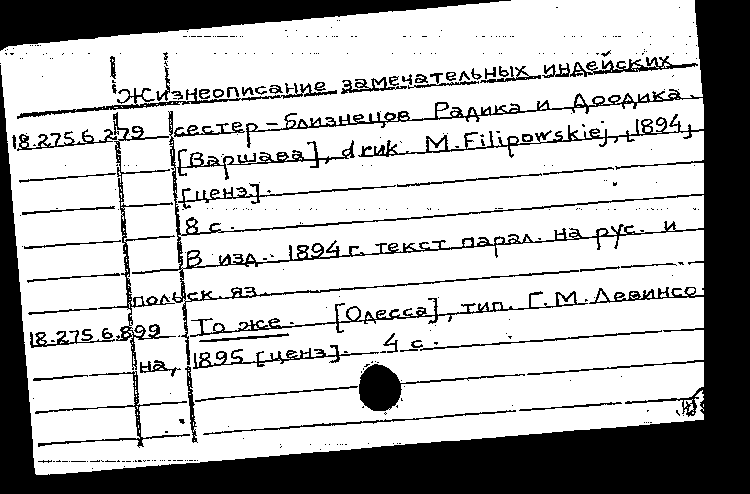 Жизнеописание замечательных индейских
18.275.6.279 сестер-близнецов Радика и Доодика.
[Варшава], druk. M. Filipowskiej, [1894,
[ценз].
8 с.
В изд. 1894 г. текст парал. на рус. и
польск. яз.
18.275.6.899 То же. [Одесса], тип. Г.М. Левинсо-
на, 1895 [ценз]. 4 с.